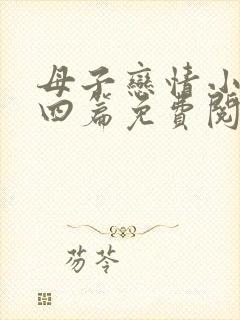 母子戀情小
四篇免費閱
芴苓